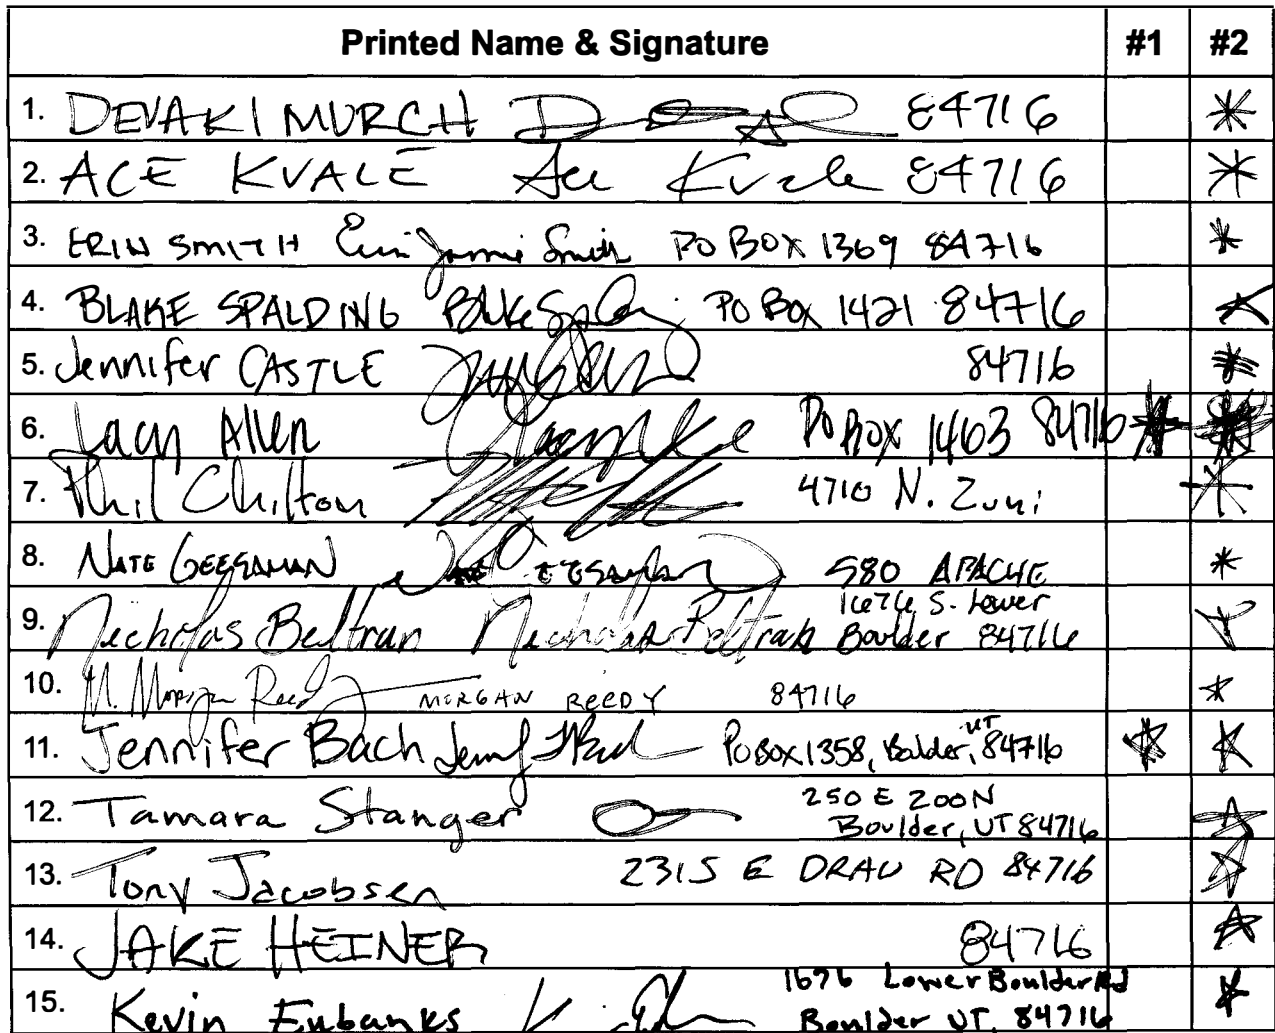 Printed Name & Signature #1 #2
1. DEVAKI MURCH 84716 *
2. ACE KVALE Ace Kvale 84716 *
3. ERIN SMITH Erin Jammie Smith PO BOX 1369 84716 *
4. BLAKE SPALDING Blake Spalding PO Box 1421 84716 *
5. Jennifer CASTLE 84716 *
6. Lacy Allen PO BOX 1463 84716 * *
7. Phil Chilton 4710 N. Zuni *
8. NATE GEESAMAN 580 APACHE *
9. Nicholas Beltran Nicholas Beltran 1676 S. Lower
Boulder 84716
10. M. Morgan Reedy MORGAN REEDY 84716 *
11. Jennifer Bach PO Box 1358, Boulder, UT 84716 * *
12. Tamara Stanger 250 E 200 N
Boulder, UT 84716
13. Tony Jacobsen 2315 E DRAW RD 84716
14. JAKE HEINER 84716
15. Kevin Eubanks 1676 Lower Boulder Rd
Boulder UT, 84716